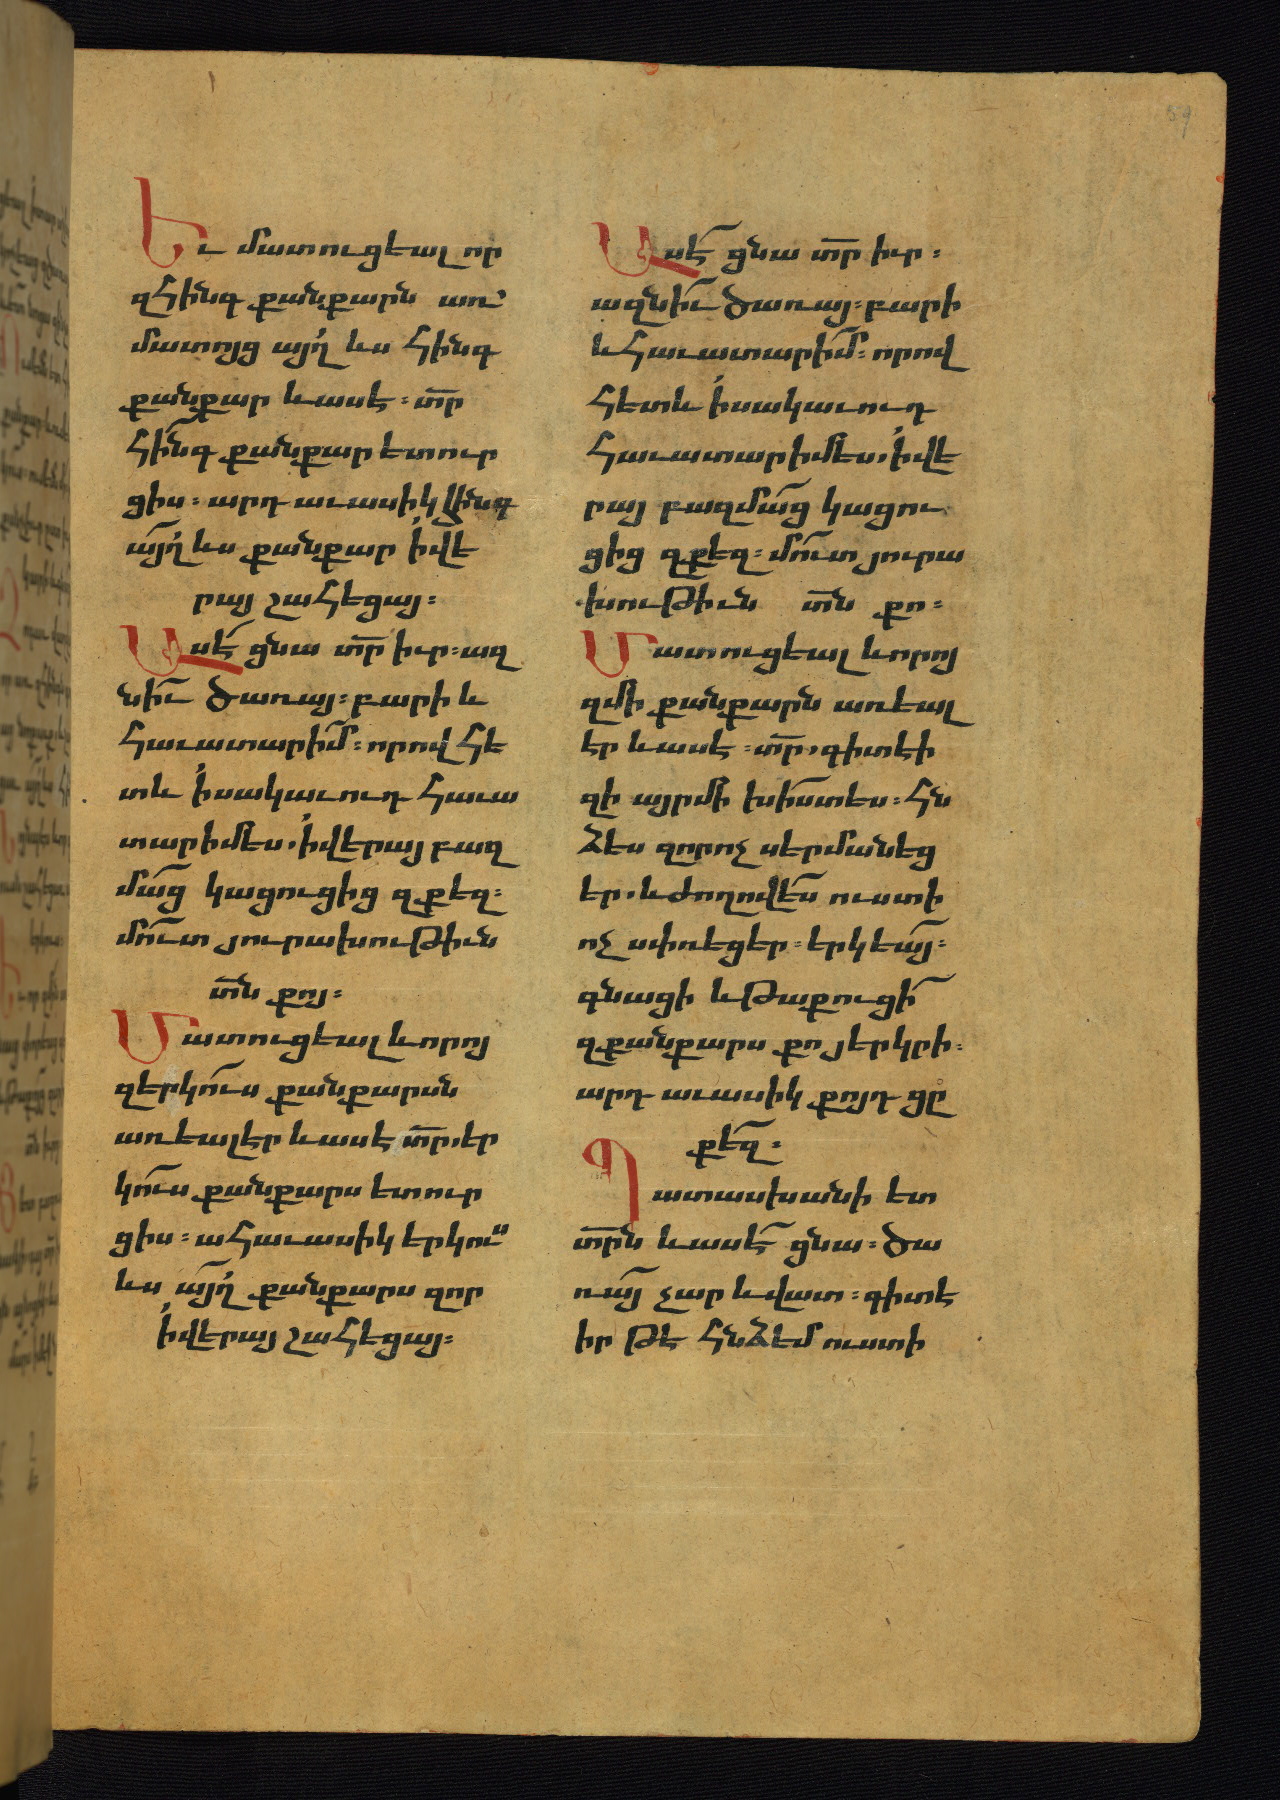 Եւ մատուցեալ որ
զհինգ քանքարն առ՝
մատոյց այղ ևս հինգ
քանքար և ասէ ։ տր
հինգ քանքար ետուր
ցիս ։ արդ աւասիկ հինգ
այղ ևս քանքար ի վե
րայ շահեցայ ։
Ասէ ցնա տր իւր ։ ազ
նիւ ծառայ ։ բարի և
հաւատարիմ ։ որով հե
տև ի սակաւուդ հաւա
տարիմ ես, ի վերայ բազ
մաց կացուցից զքեզ ։
մուտ յուրախութիւն
տն քոյ ։
Մատուցեալ և որոյ
զերկուս քանքարսն
առեալ էր և ասէ տր, եր
կուս քանքարս ետուր
ցիս ։ ահաւասիկ երկուս
ևս այղ քանքարս զոր
ի վերայ շահեցայ ։
Ասէ ցնա տր իւր ։
ազնիւ ծառայ ։ բարի
և հաւատարիմ ։ որով
հետև ի սակաւուդ
հաւատարիմ ես, ի վե
րայ բազմաց կացու
ցից զքեզ ։ մուտ յուրա
խութիւն տն քո ։
Մատուցեալ և որոյ
զմի քանքարն առեալ
էր և ասէ ։ տր, գիտէի
զի այր մի խիստ ես ։ հն
ձես զոր ոչ սերմանեց
եր, և ժողովես ուստի
ոչ սփռեցեր ։ երկեայ ։
գնացի և թաքուցի
զքանքարս քո յերկրի ։
արդ աւասիկ քոյդ ցը
քեզ ։
Պատասխանի ետ
տրն և ասէ ցնա ։ ծա
ռայ չար և վատ ։ գիտէ
իր թէ հնձեմ ուստի